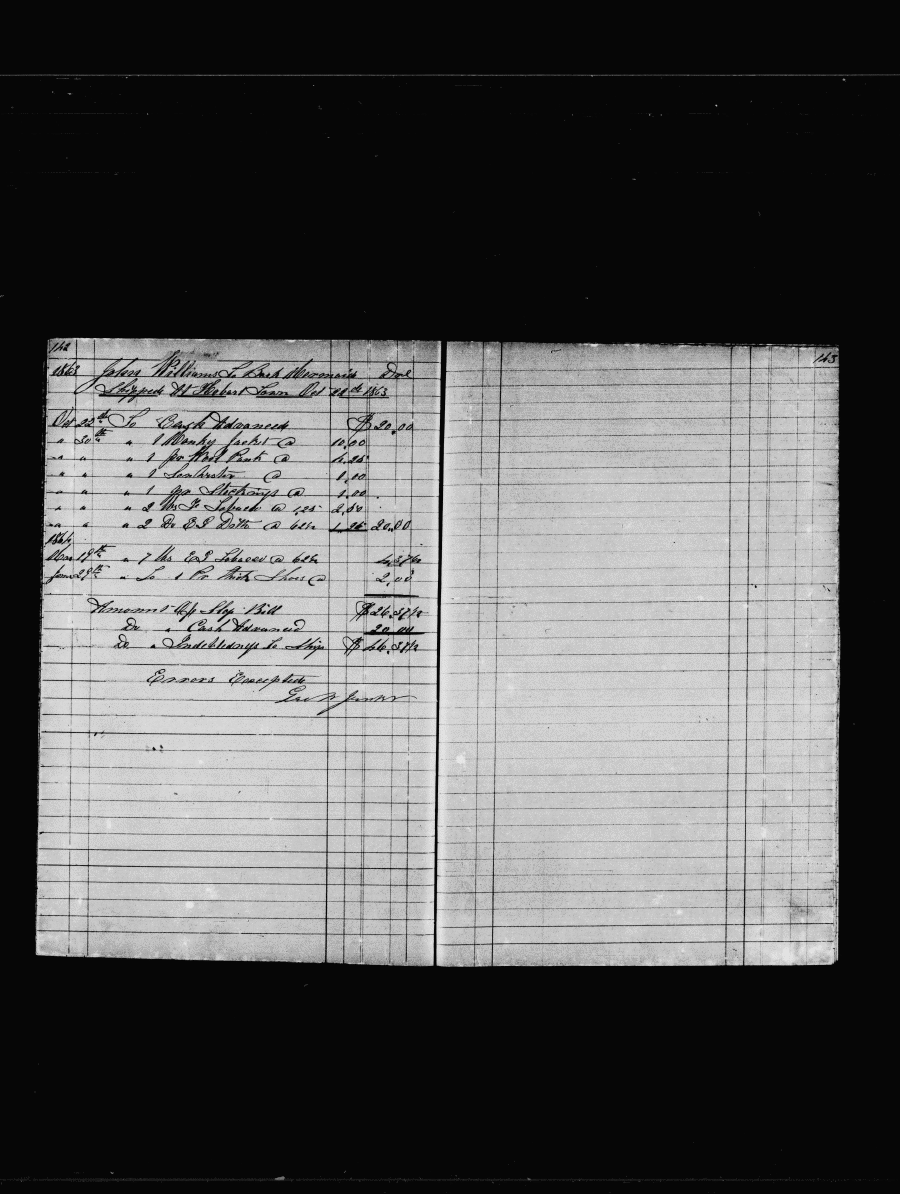 142
143
1863 John Williams To Bark Mermaid Dr
Shipped At Hobart Town Oct 22nd 1863
Oct 22nd To Cash Advanced $20.00
" 30th " 1 Monky Jacket @ 10.00
" " " 1 pr Wool Pants @ 4.25
" " " 1 @ 1.00
" " " 1 pr Stockings @ 1.00
" " " 2 lbs F Tobacco @ 1,25 2.50
" " " 2 Do E I Ditto @ 62½ 1.25 20.00
1864
Mar 19th " 7 lbs E I Tobacco @ 62½ 4.37½
29th " To 1 Pr thick Shoes @ 2.00
Amount Of Slop Bill $26.37½
Do " Cash Advanced 20.00
Do " Indebtednys to Ship $46.37½
Errors Excepted